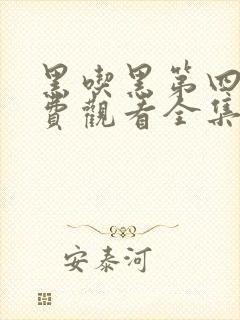 黑喫黑第四
費觀看全集
安泰河